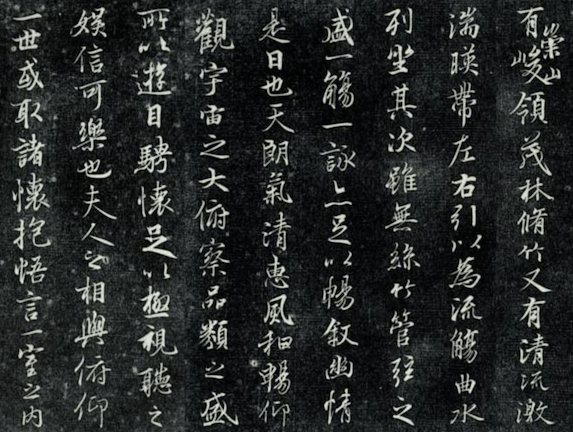 有崇山峻領茂林脩竹又有清流激
湍暎帶左右引以為流觴曲水
列坐其次雖無絲竹管弦之
盛一觴一詠亦足以暢叙幽情
是日也天朗氣清惠風和暢仰
觀宇宙之大俯察品類之盛
所以遊目騁懷足以極視聽之
娛信可樂也夫人之相與俯仰
一世或取諸懷抱悟言一室之內